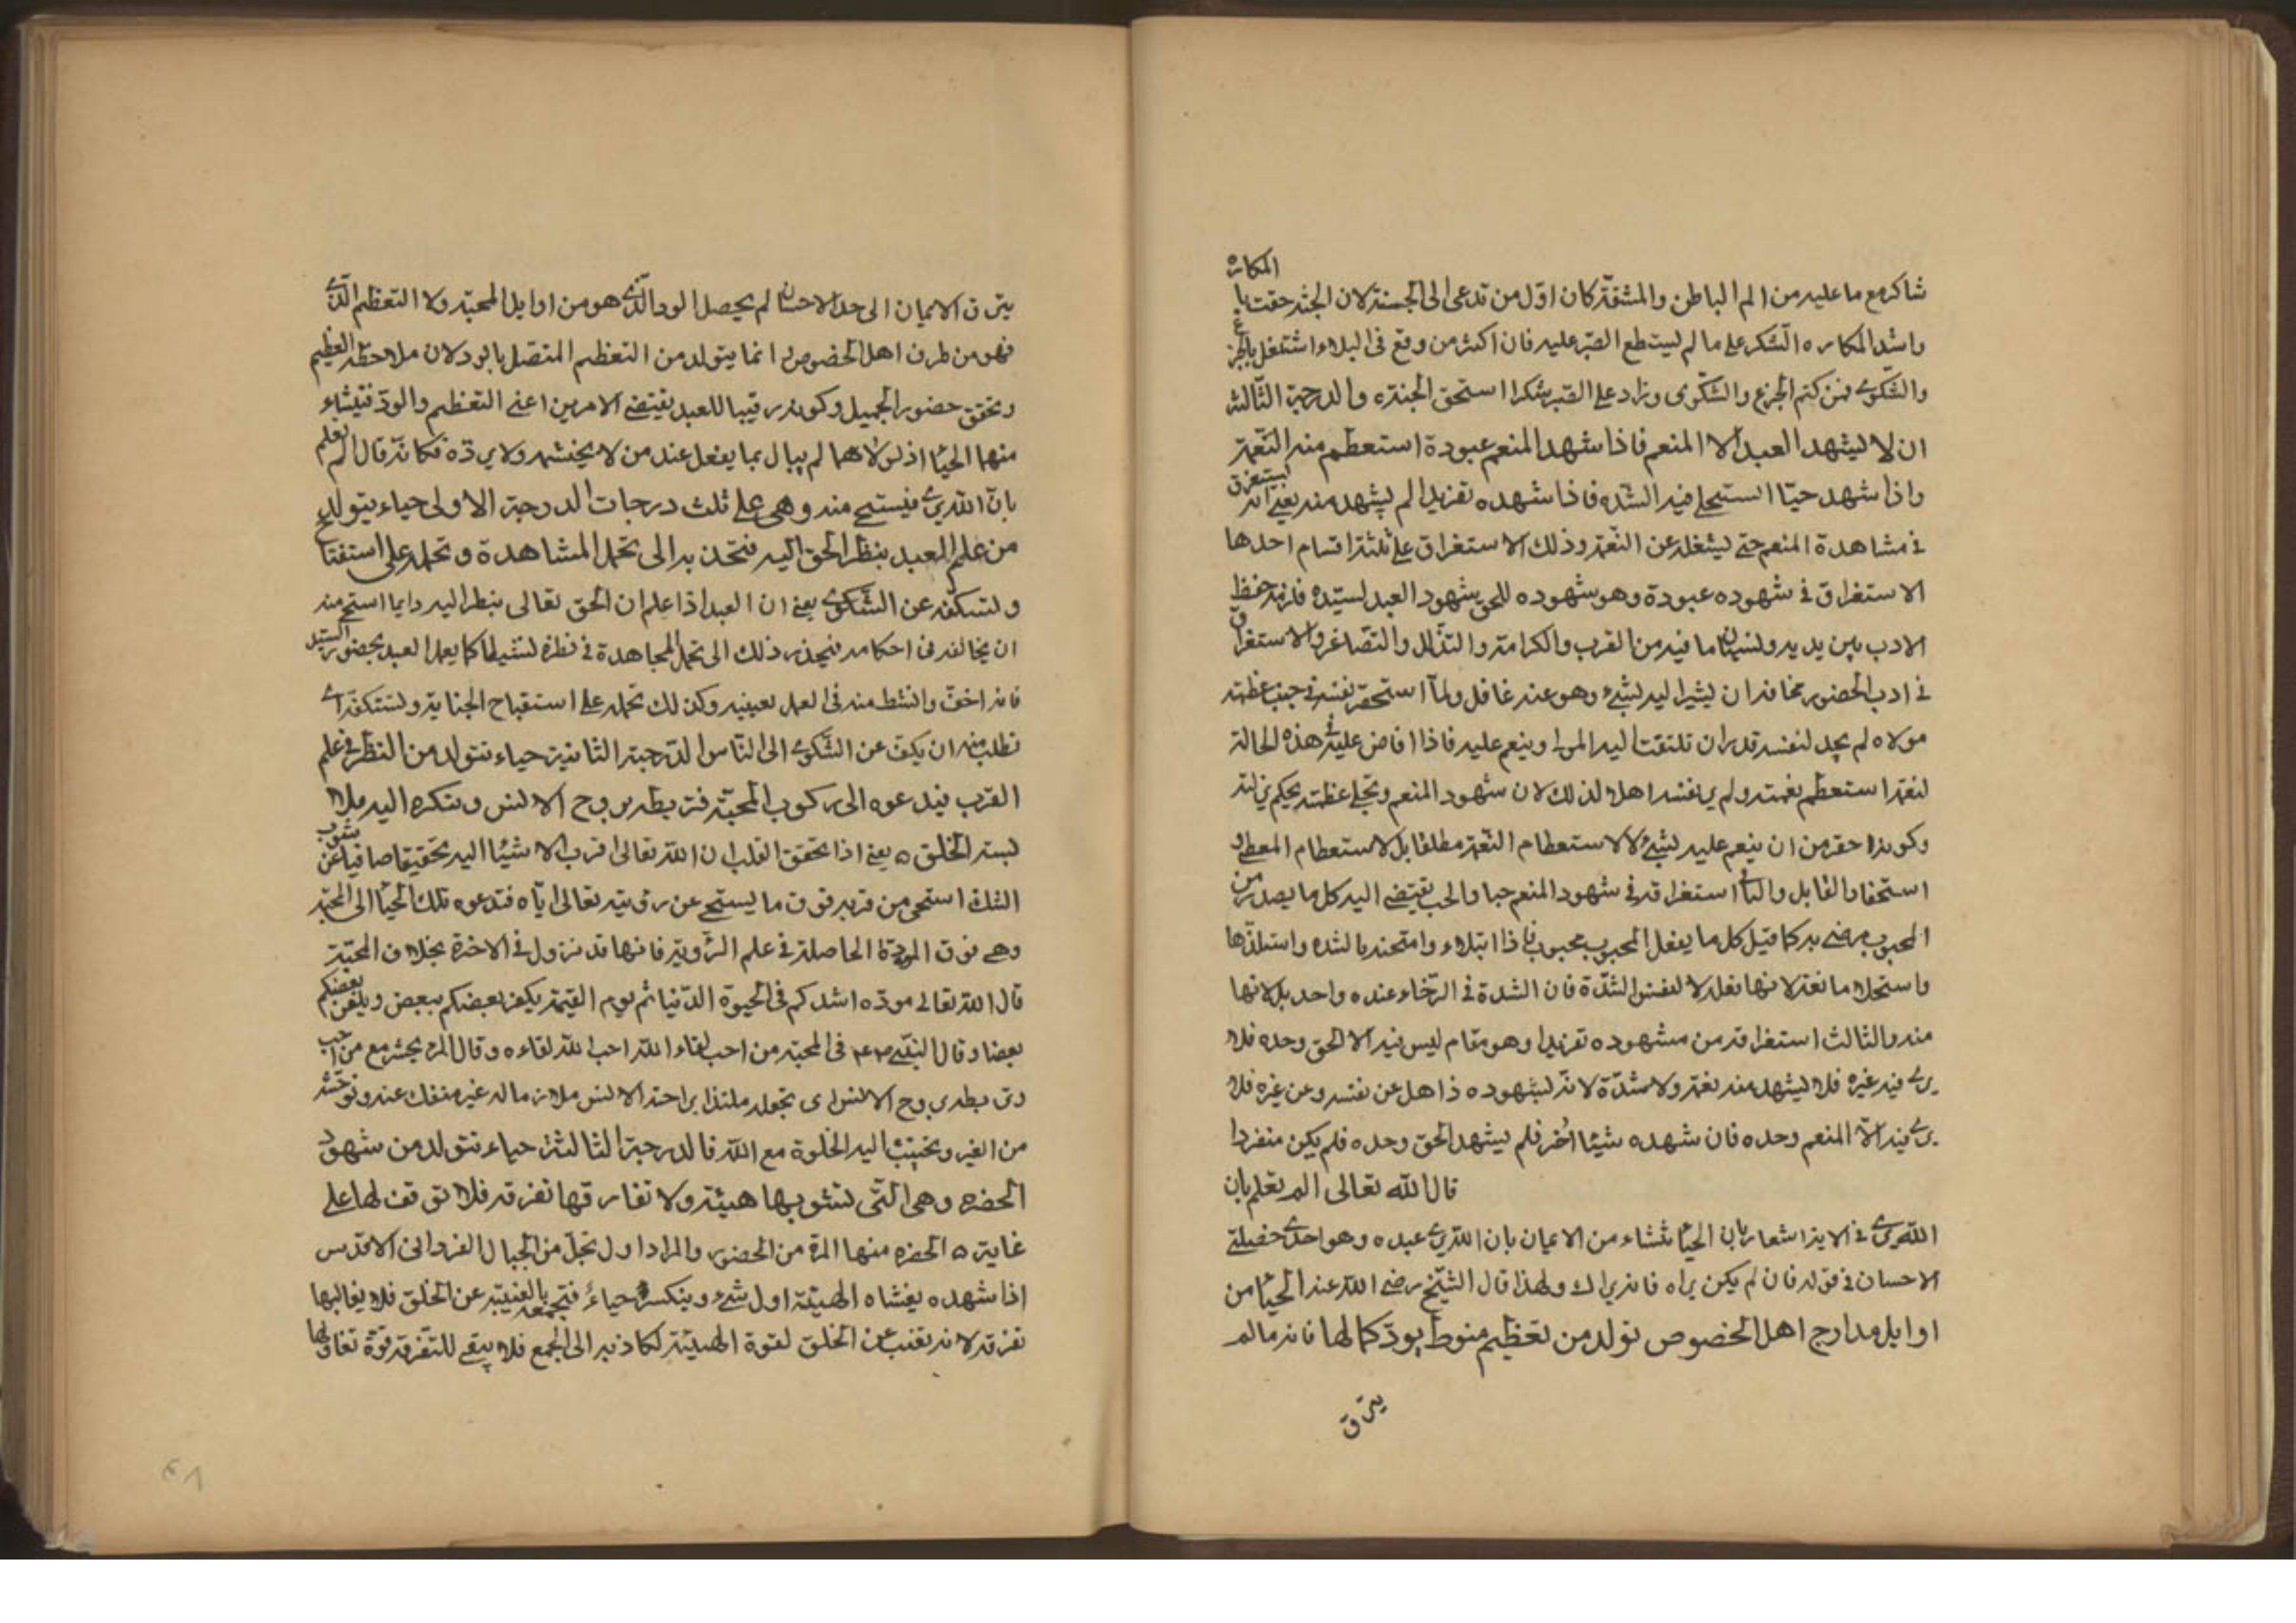 المكاره
شاكر مع ما عليه من الم الباطن والمشقة كان اول من تدعى الى الجنة لان الجنة حفت با
واشد المكاره الشكر على ما لم يستطع الصبر عليه فان اكثر من وقع فى البلاء اشتغل بالجزع
والشكوى فمن كتم الجزع والشكوى وزاد على الصبر شكرا استحق الجنة ه والدرجة الثالثة
ان لا يشهد العبد الا المنعم فاذا شهد المنعم عبودة استعظم منه النعمة
واذا شهد حبّا استحلى منه الشده فاذا شهده تفريدا لم يشهد منه يعنى انه يستغرق
فى مشاهدة المنعم حتى يشغله عن النعمة وذلك الاستغراق على ثلثة اقسام احدها
الاستغراق فى شهوده عبودة وهو شهوده للحق شهود العبد لسيّده فلزمه حفظ
الادب بين يديه ونسيان ما فيه من القرب والكرامة والتذلل والتصاغر والاستغراق
فى ادب الحضور مخافة ان يشير اليه بشىء وهو عنه غافل ولمّا استحقر نفسه فى جنب عظمة
مولاه لم يجد لنفسه قدر ان تلتفت اليه المولى وينعم عليه فاذا افاض عليه فى هذه الحالة
نعمة استعظم نعمته ولم ير نفسه اهلا لذلك لان شهود المنعم وتجلى عظمته يحكم بزلته
وكونه احقر من ان ينعم عليه بشىء لا لاستعظام النعمة مطلقا بل لاستعظام المعطى و
استحقار القابل والثانى استغراقه فى شهود المنعم حبا والحب يقتضى اليه كل ما يصدر من
المحبوب مرضى به كما قيل كل ما يفعل المحبوب محبوب فاذا ابتلاء وامتحنه بالشده واستلذّها
واستحلاها نعته لانها فعله لا لنفس الشدّة فان الشدة فى الرخاء عنده واحد بل لانها
منه والثالث استغراقه من مشهوده تفريدا وهو مقام ليس فيه الا الحق وحده فلا
يرى فيه غيره فلا يشهد منه نعمة ولا شدّة لانّه لشهوده ذاهل عن نفسه وعن غيره فلا
يرى فيه الّا المنعم وحده فان شهده شيئا آخر فلم يشهد الحق وحده فلم يكن منفردا
قال الله تعالى الم يعلم بان
الله يرى فى الاية اشعار بان الحيا ينشاء من الايمان بان الله يرى عبده وهو احدى خصلتى
الاحسان فى قوله فان لم يكن يراه فانه يراك ولهذا قال الشيخ رضى الله عنه الحيا من
اوايل مدارج اهل الخصوص تولد من تعظيم منوط بودّ كما لها فانه ما لم
يترق
يترق الايمان الى حد الاحسان لم يحصل الود الّذى هو من اوايل المحبة ولا التعظيم الّذى
فهو من طرف اهل الخصوص انما يتولد من التعظيم المتصل بالود لان ملاحظة العظيم
وتحقق حضور الجميل وكونه رقيبا للعبد يقتضى الامرين اعنى التعظيم والودّ فينشاء
منهما الحيا اذ لولاهما لم يبال بما يفعل عند من لا يخشه ولا يرده فكانّه قال الم يعلم
بانّ الله يرى فيستحى منه وهى على ثلث درجات الدرجة الاولى حياء يتولد
من علم العبد بنظر الحق اليه فتجذبه الى تحمل المشاهدة وتحمله على استقباح
ولتسكفه عن الشكوى يعنى ان العبد اذا علم ان الحق تعالى ينظر اليه دايما استحى منه
ان يخالفه فى احكامه فيجذبه ذلك الى تحمل المجاهدة فى نظره نشيطا كما يعمل العبد بحضور السيد
فانه اخف وانشط منه فى العمل بعينيه وكذلك تحمله على استقباح الجناية وتستكفه اى
تطلب منه ان يكف عن الشكوى الى الناس الدرجة الثانية حياء تتولد من النظر فى علم
القرب فيدعوه الى ركوب المحبّة فتربطه بروح الانس وتكره اليه ملا
بسة الخلق ه يعنى اذا تحقق القلب ان الله تعالى اقرب الاشيئا اليه تحقيقا صافيا عن شوب
الشك استحى من قربه فوق ما يستحى عن رؤيته تعالى ايّاه فتدعوه تلك الحيا الى المحبّة
وهى فوق المودّة الحاصلة فى علم الرؤية فانها قد تزول فى الاخرة بخلاف المحبّة
قال الله تعالى مودّه اشدكم فى الحيوة الدّنيا ثم يوم القيمة يكفر بعضكم ببعض ويلعن بعضكم
بعضا وقال النبىّ فى المحبّة من احب لقاء الله احب الله لقاءه وقال المرء يحشر مع من احب
وتربطه بروح الانس اى تجعله ملتذا براحة الانس ملازما له غير منفك عنه وتوحّشه
من الغير وتحبّب اليه الخلوة مع الله فالدرجة الثالثة حياء تتولد من شهود
الحضرة وهى الّتى تشوبها هيبة ولا تقارقها تفرقة فلا توقف لها على
غاية ه الحضرة منها المرة من الحضور والمراد اول تجلّ من الجبال الفردانى الاقدس
اذا شهده يغشاه الهيبة اول شىء وينكسر حياءً فتجمعه بالغيبة عن الخلق فلا يغالبها
تفرقة لانه يغيب عن الخلق لقوة الهيبة لكاذبه الى الجمع فلا يبقى للتفرقة قوّة تعاوقها